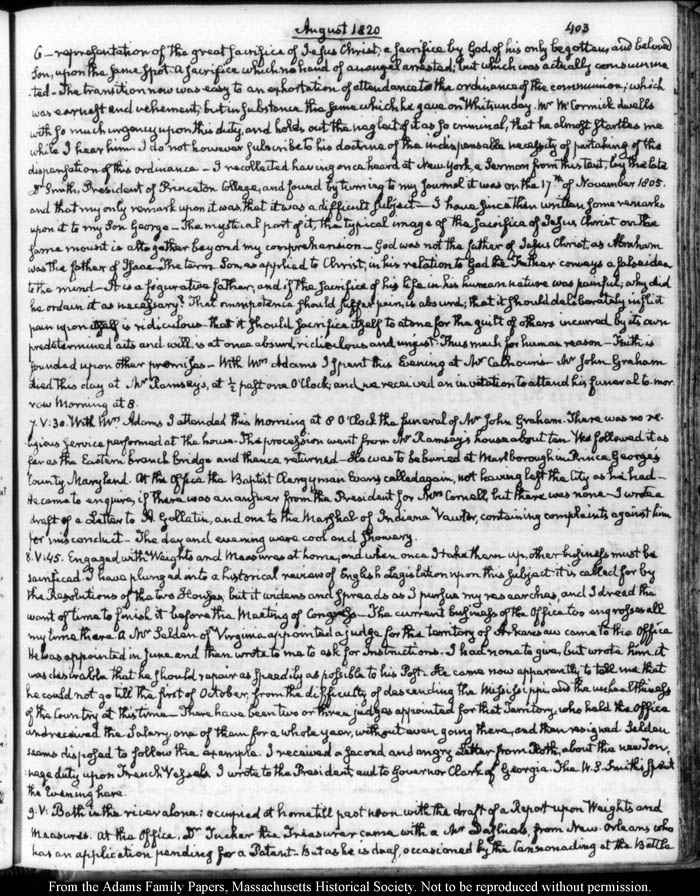 August 1820
403
6 — representation of the great sacrifice of Jesus Christ; a sacrifice by God, of his only begotten, and beloved
Son, upon the same spot. A sacrifice which no hand of an angel arrested; but which was actually consumma
ted — The transition now was easy to an exhortation of attendance to the ordinance of the communion; which
was earnest and vehement, but in substance the same which he gave on Whitsunday. Mr McCormick dwells
with so much urgency upon this duty, and holds out the neglect of it as so criminal, that he almost startles me
while I hear him. I do not however subscribe to his doctrine of the indispensable necessity of partaking of the
dispensation of this ordinance — I recollected having once heard at New York, a Sermon from this text, by the late
Dr Smith, President of Princeton College, and found by turning to my Journal it was on the 17th of November 1805.
and that my only remark upon it was that it was a difficult subject — I have since then written some remarks
upon it to my Son George — The mystical part of it, the typical image of the sacrifice of Jesus Christ on the
same mount is altogether beyond my comprehension — God was not the father of Jesus Christ, as Abraham
was the father of Isaac. The term Son as applied to Christ, in his relation to God the Father conveys a false idea
to the mind — It is a figurative father; and if the sacrifice of his life in his human nature was painful, why did
he ordain it as necessary? That omnipotence should suffer pain, is absurd; that it should deliberately inflict
pain upon itself is ridiculous — that it should sacrifice itself to atone for the guilt of others incurred by its own
predetermined acts and will, is at once absurd, ridiculous and unjust. Thus much for human reason — Faith is
founded upon other premises. With Mrs Adams I spent this Evening at Mr Calhoun's — Mr John Graham
died this day at Mr Ramsay's, at ½ past one O'Clock, and we received an invitation to attend his funeral to-mor
row Morning at 8.
7. V:30. With Mrs Adams I attended this Morning at 8 O'Clock the funeral of Mr John Graham. There was no re-
ligious service performed at the house. The procession went from Mr Ramsay's house about ten. We followed it as
far as the Eastern branch bridge and thence returned — He was to be buried at Marlborough in Prince George's
County, Maryland. At the Office the Baptist Clergyman Evans called again, not having left the City as he had —
He came to enquire, if there was an answer from the President for Cornell, but there was none — I wrote a
draft of a Letter to A. Gallatin, and one to the Marshal of Indiana Vawter, containing complaints against him
for misconduct — The day and evening were cool and showery.
8. V:45. Engaged with Weights and Measures at home, and when once I take them up, other business must be
sacrificed. I have plunged into a historical review of English Legislation upon this subject: it is called for by
the Resolutions of the two Houses, but it widens and spreads as I pursue my researches, and I dread the
want of time to finish it before the Meeting of Congress — The current business of the Office too engrosses all
my time there. A Mr Selden of Virginia appointed a Judge for the territory of Arkansaw came to the Office
He was appointed in June and then wrote to me to ask for Instructions. I had none to give, but wrote him, it
was desirable that he should repair as speedily as possible to his Post. He came now apparently to tell me that
he could not go till the first of October, from the difficulty of descending the Mississippi, and the unhealthiness
of the Country at this time — There have been two or three judges appointed for that Territory, who held the Office
and received the Salary, one of them for a whole year, without even going there, and then resigned. Selden
seems disposed to follow the example. I received a second and angry Letter from Roth, about the new Ton-
nage duty upon French Vessels. I wrote to the President, and to Governor Clark of Georgia. The W. S. Smiths spent
the Evening here.
9. V: Bath in the river alone: occupied at home till past noon with the draft of a Report upon Weights and
Measures. At the Office, Dr Tucker the Treasurer came with a Mr from New Orleans who
has an application pending for a Patent — But as he is deaf, occasioned by the Cannonading at the Battle
From the Adams Family Papers, Massachusetts Historical Society. Not to be reproduced without permission.